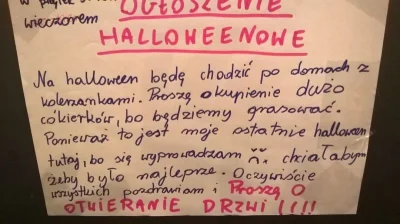 wieczorem
OGŁOSZENIE
HALLOWEENOWE
Na halloween będę chodzić po domach z
koleżankami. Proszę o kupienie dużo
cukierków, bo będziemy grasować.
Ponieważ to jest moje ostatnie halloween
tutaj, bo się wyprowadzam ☹, chciałabym
żeby było najlepsze. Oczywiście
wszystkich pozdrawiam i Proszę O
OTWIERANIE DRZWI!!!!